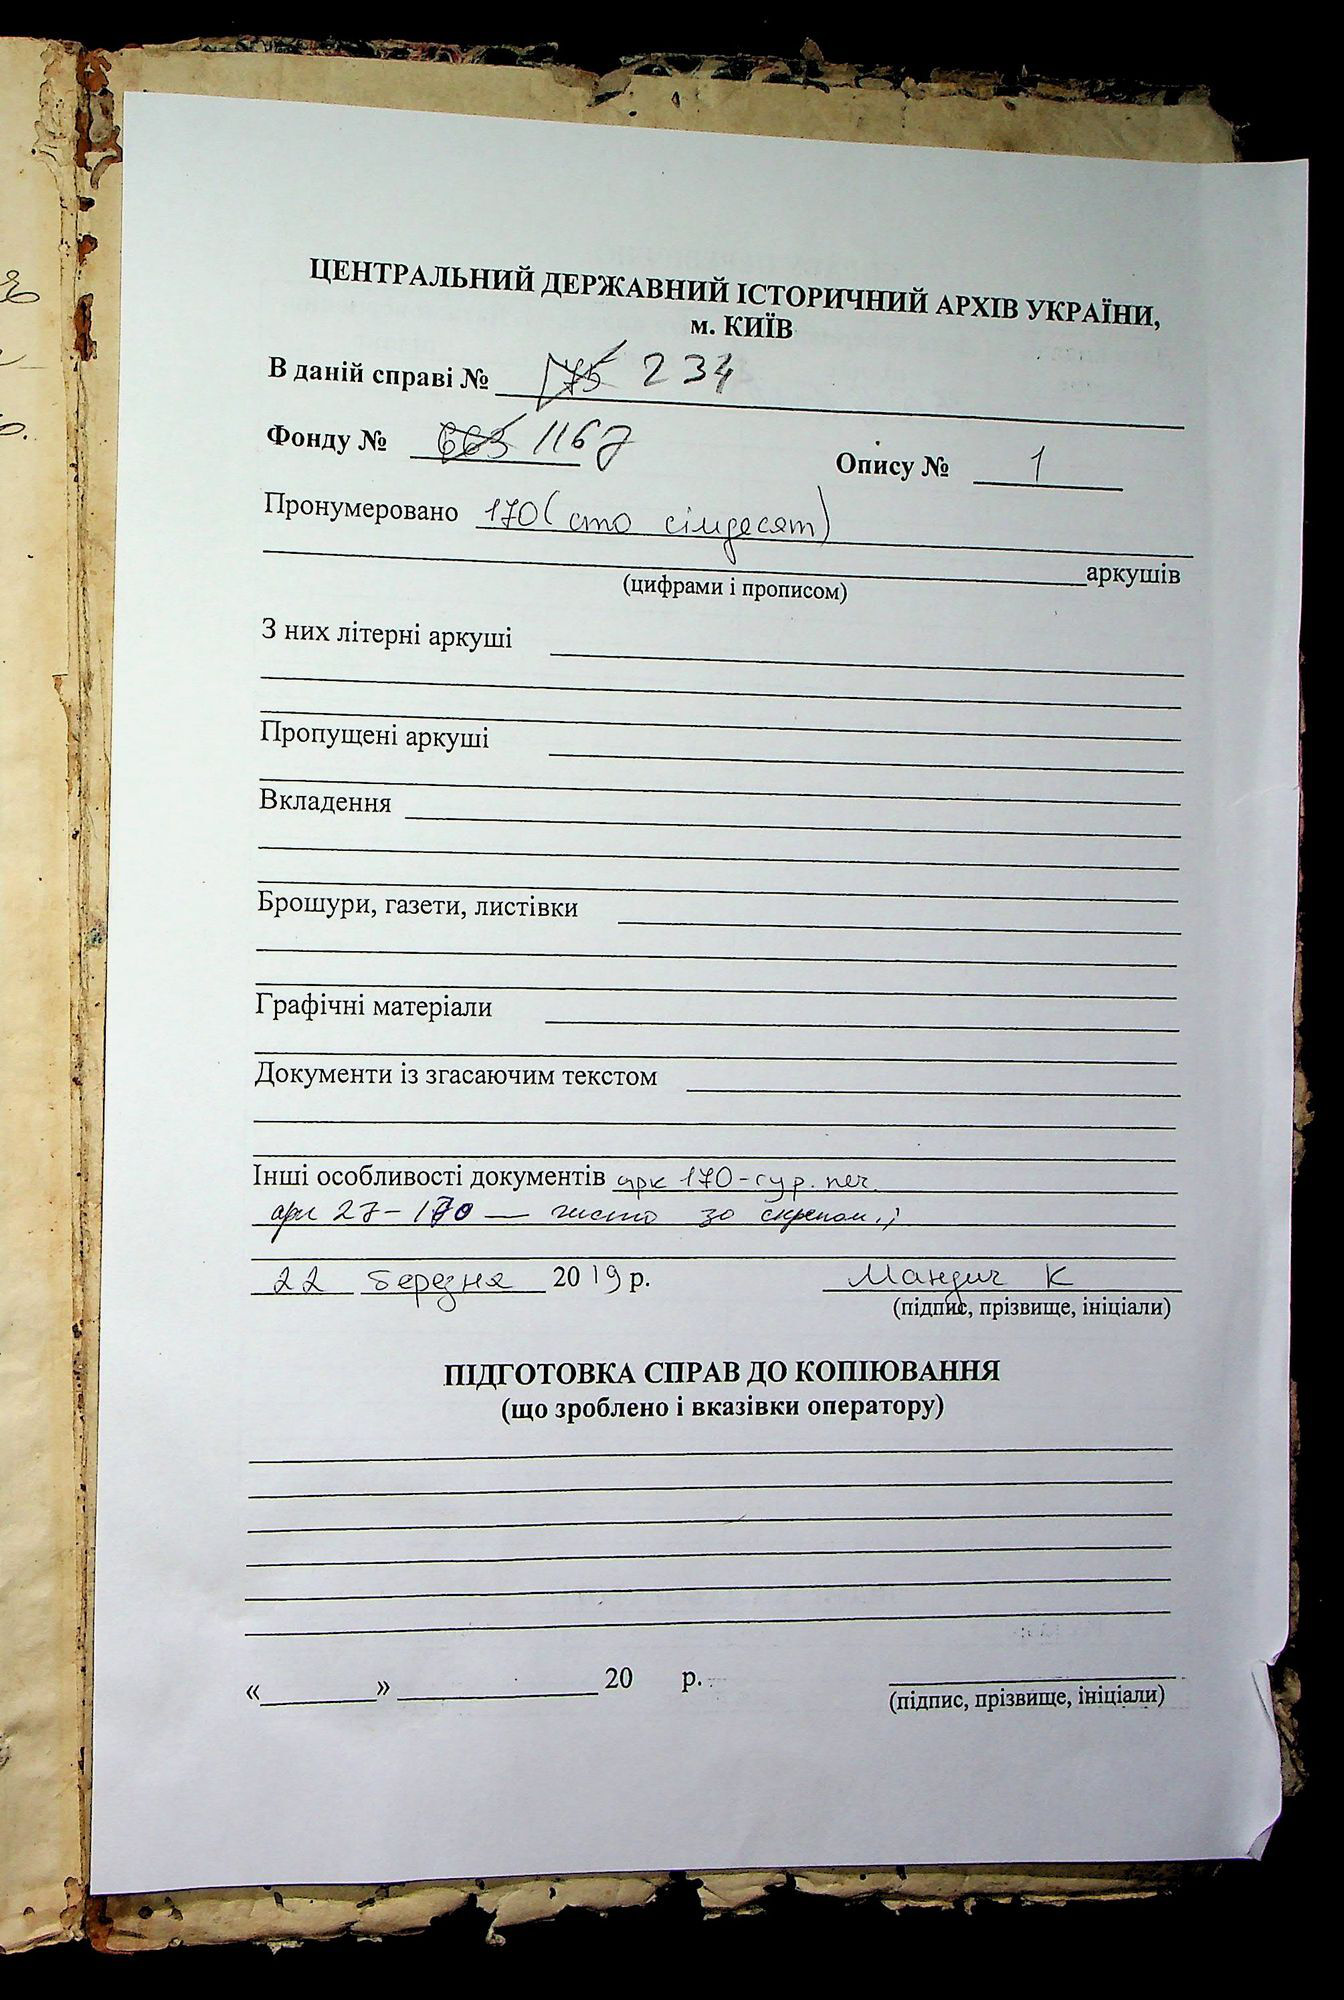 ЦЕНТРАЛЬНИЙ ДЕРЖАВНИЙ ІСТОРИЧНИЙ АРХІВ УКРАЇНИ,
м. КИЇВ
В даній справі № 175 234
Фонду № 663 1167 Опису № 1
Пронумеровано 170 (сто сімдесят)
аркушів
(цифрами і прописом)
З них літерні аркуші
Пропущені аркуші
Вкладення
Брошури, газети, листівки
Графічні матеріали
Документи із згасаючим текстом
Інші особливості документів арк 170-сур. печ.
арк 27-170 — чисто зо скрепом.;
22 березня 2019 р. Мандич К
(підпис, прізвище, ініціали)
ПІДГОТОВКА СПРАВ ДО КОПІЮВАННЯ
(що зроблено і вказівки оператору)
«____» ____ 20 р.
(підпис, прізвище, ініціали)